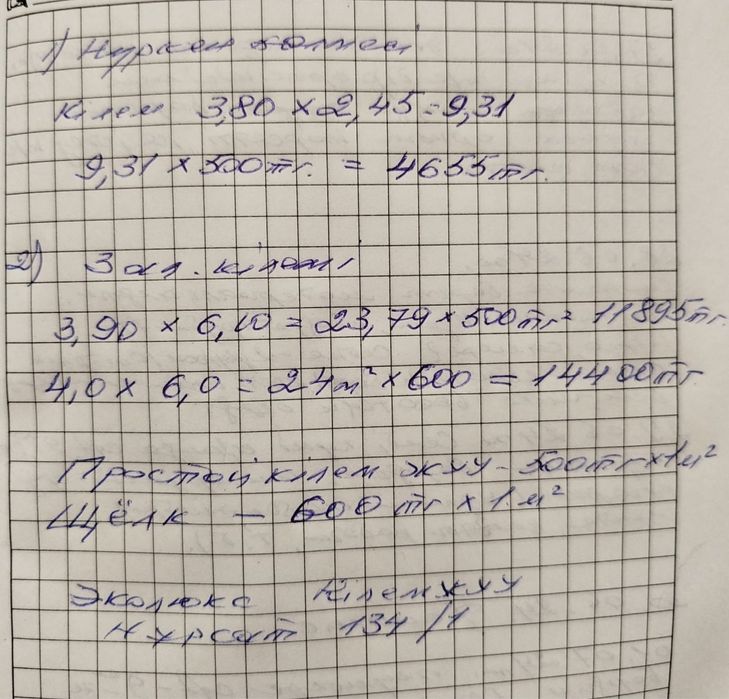 1) Нуркен бөлмесі
Кілем 3,80 × 2,45 = 9,31
9,31 × 500тг. = 4655тг.
2) Зал. кілемі
3,90 × 6,10 = 23,79 × 500тг = 11895тг.
4,0 × 6,0 = 24м² × 600 = 14400тг
Простой кілем жуу - 500тг × 1м²
Щёлк - 600 тг × 1 м²
Эколюкс Кілем жуу
Нурсат 134/1